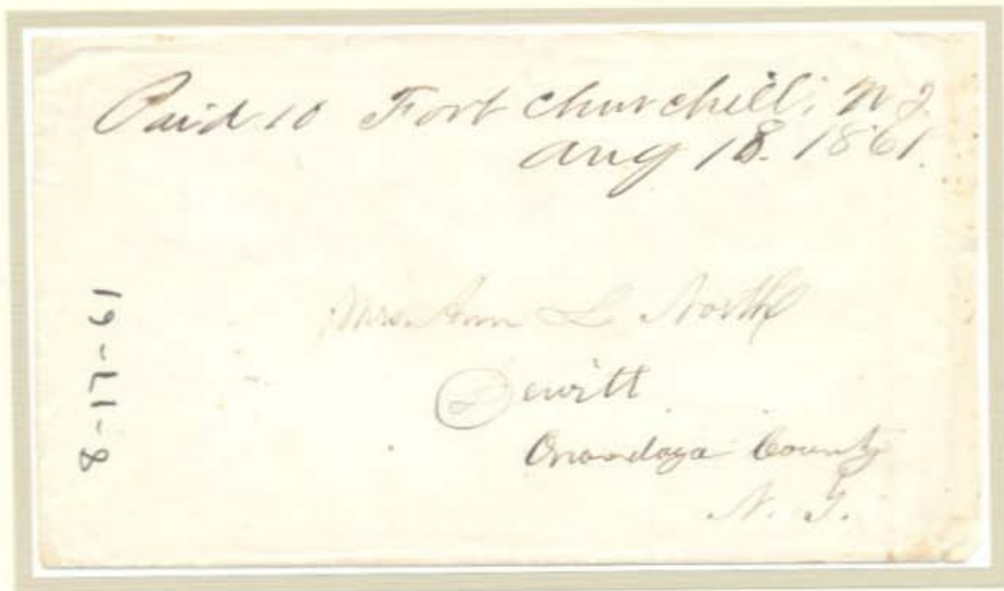 Paid 10 Fort Churchill, N J.
Aug 18. 1861.
Mrs. Ann L North
Dewitt
Onondaga County
N. Y.
8-17-61